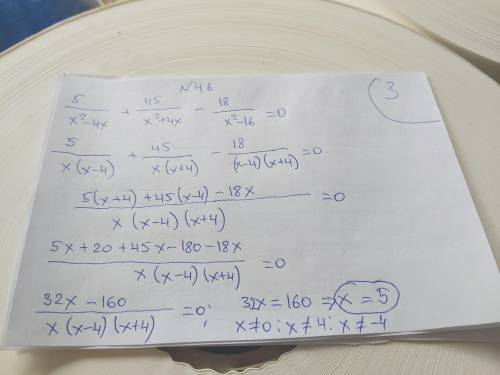 N46
3
5/(x²-4x) + 45/(x²+4x) - 18/(x²-16) = 0
5/(x(x-4)) + 45/(x(x+4)) - 18/((x-4)(x+4)) = 0
(5(x+4)+45(x-4)-18x)/(x(x-4)(x+4)) = 0
(5x+20+45x-180-18x)/(x(x-4)(x+4)) = 0
(32x-160)/(x(x-4)(x+4)) = 0; 32x=160 ⇒ x=5
x≠0; x≠4; x≠-4